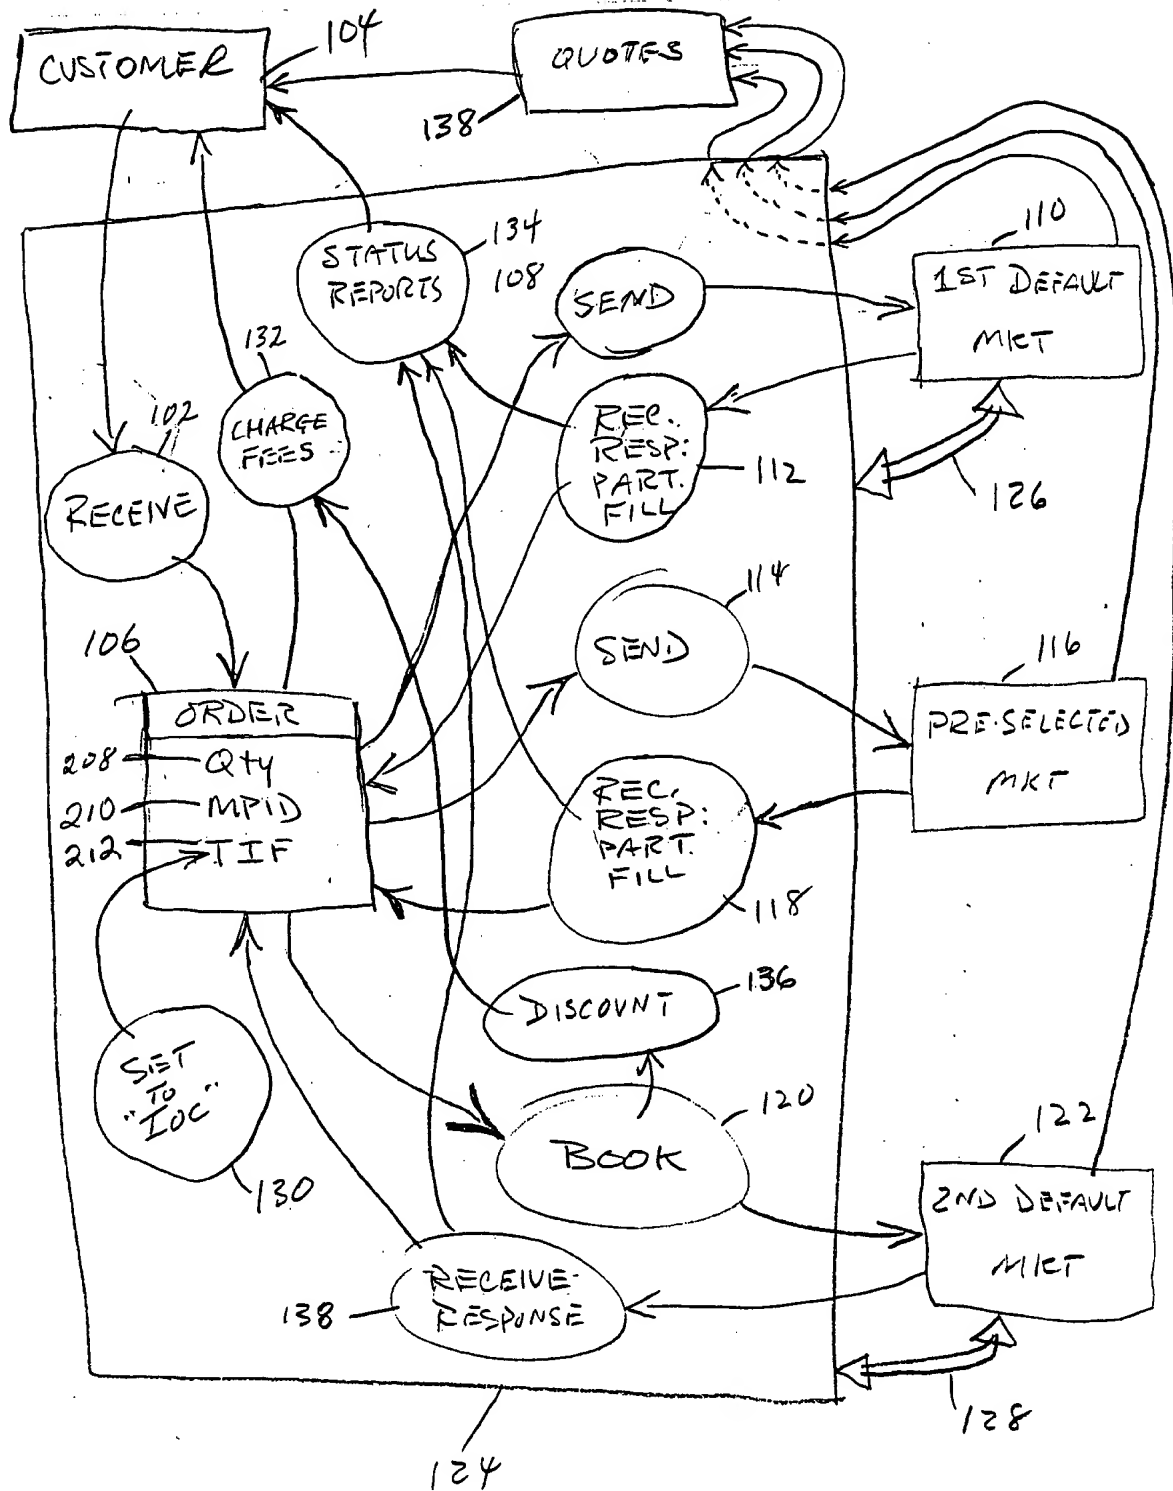 CUSTOMER
104
QUOTES
138
STATUS
REPORTS
134
108
SEND
110
1ST DEFAULT
MKT
132
CHARGE
FEES
102
RECEIVE
REC.
RESP:
PART.
FILL
112
126
114
SEND
106
ORDER
208
Qty
210
MPID
212
TIF
116
PRE-SELECTED
MKT
REC.
RESP:
PART.
FILL
118
136
DISCOUNT
SET
TO
"IOC"
130
120
BOOK
122
2ND DEFAULT
MKT
RECEIVE-
RESPONSE
138
128
124